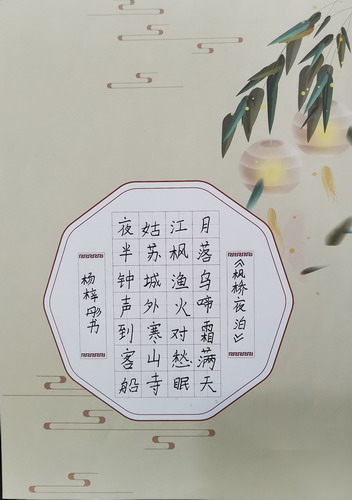 《枫桥夜泊》
月落乌啼霜满天
江枫渔火对愁眠
姑苏城外寒山寺
夜半钟声到客船
杨梓彤书